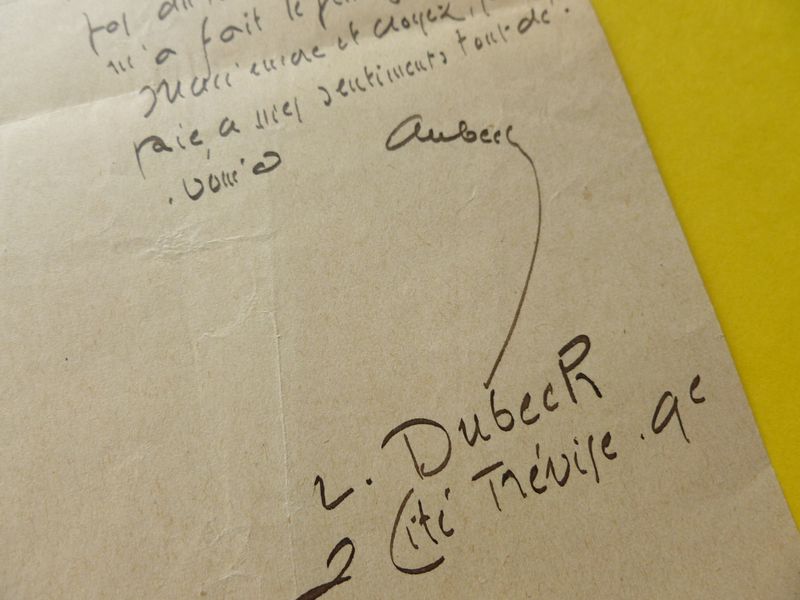 m'a fait le
et croyez,
paie, à mes sentiments tout dé.
.voués
Dubech
L. Dubech
2 Cité Trévise. 9e